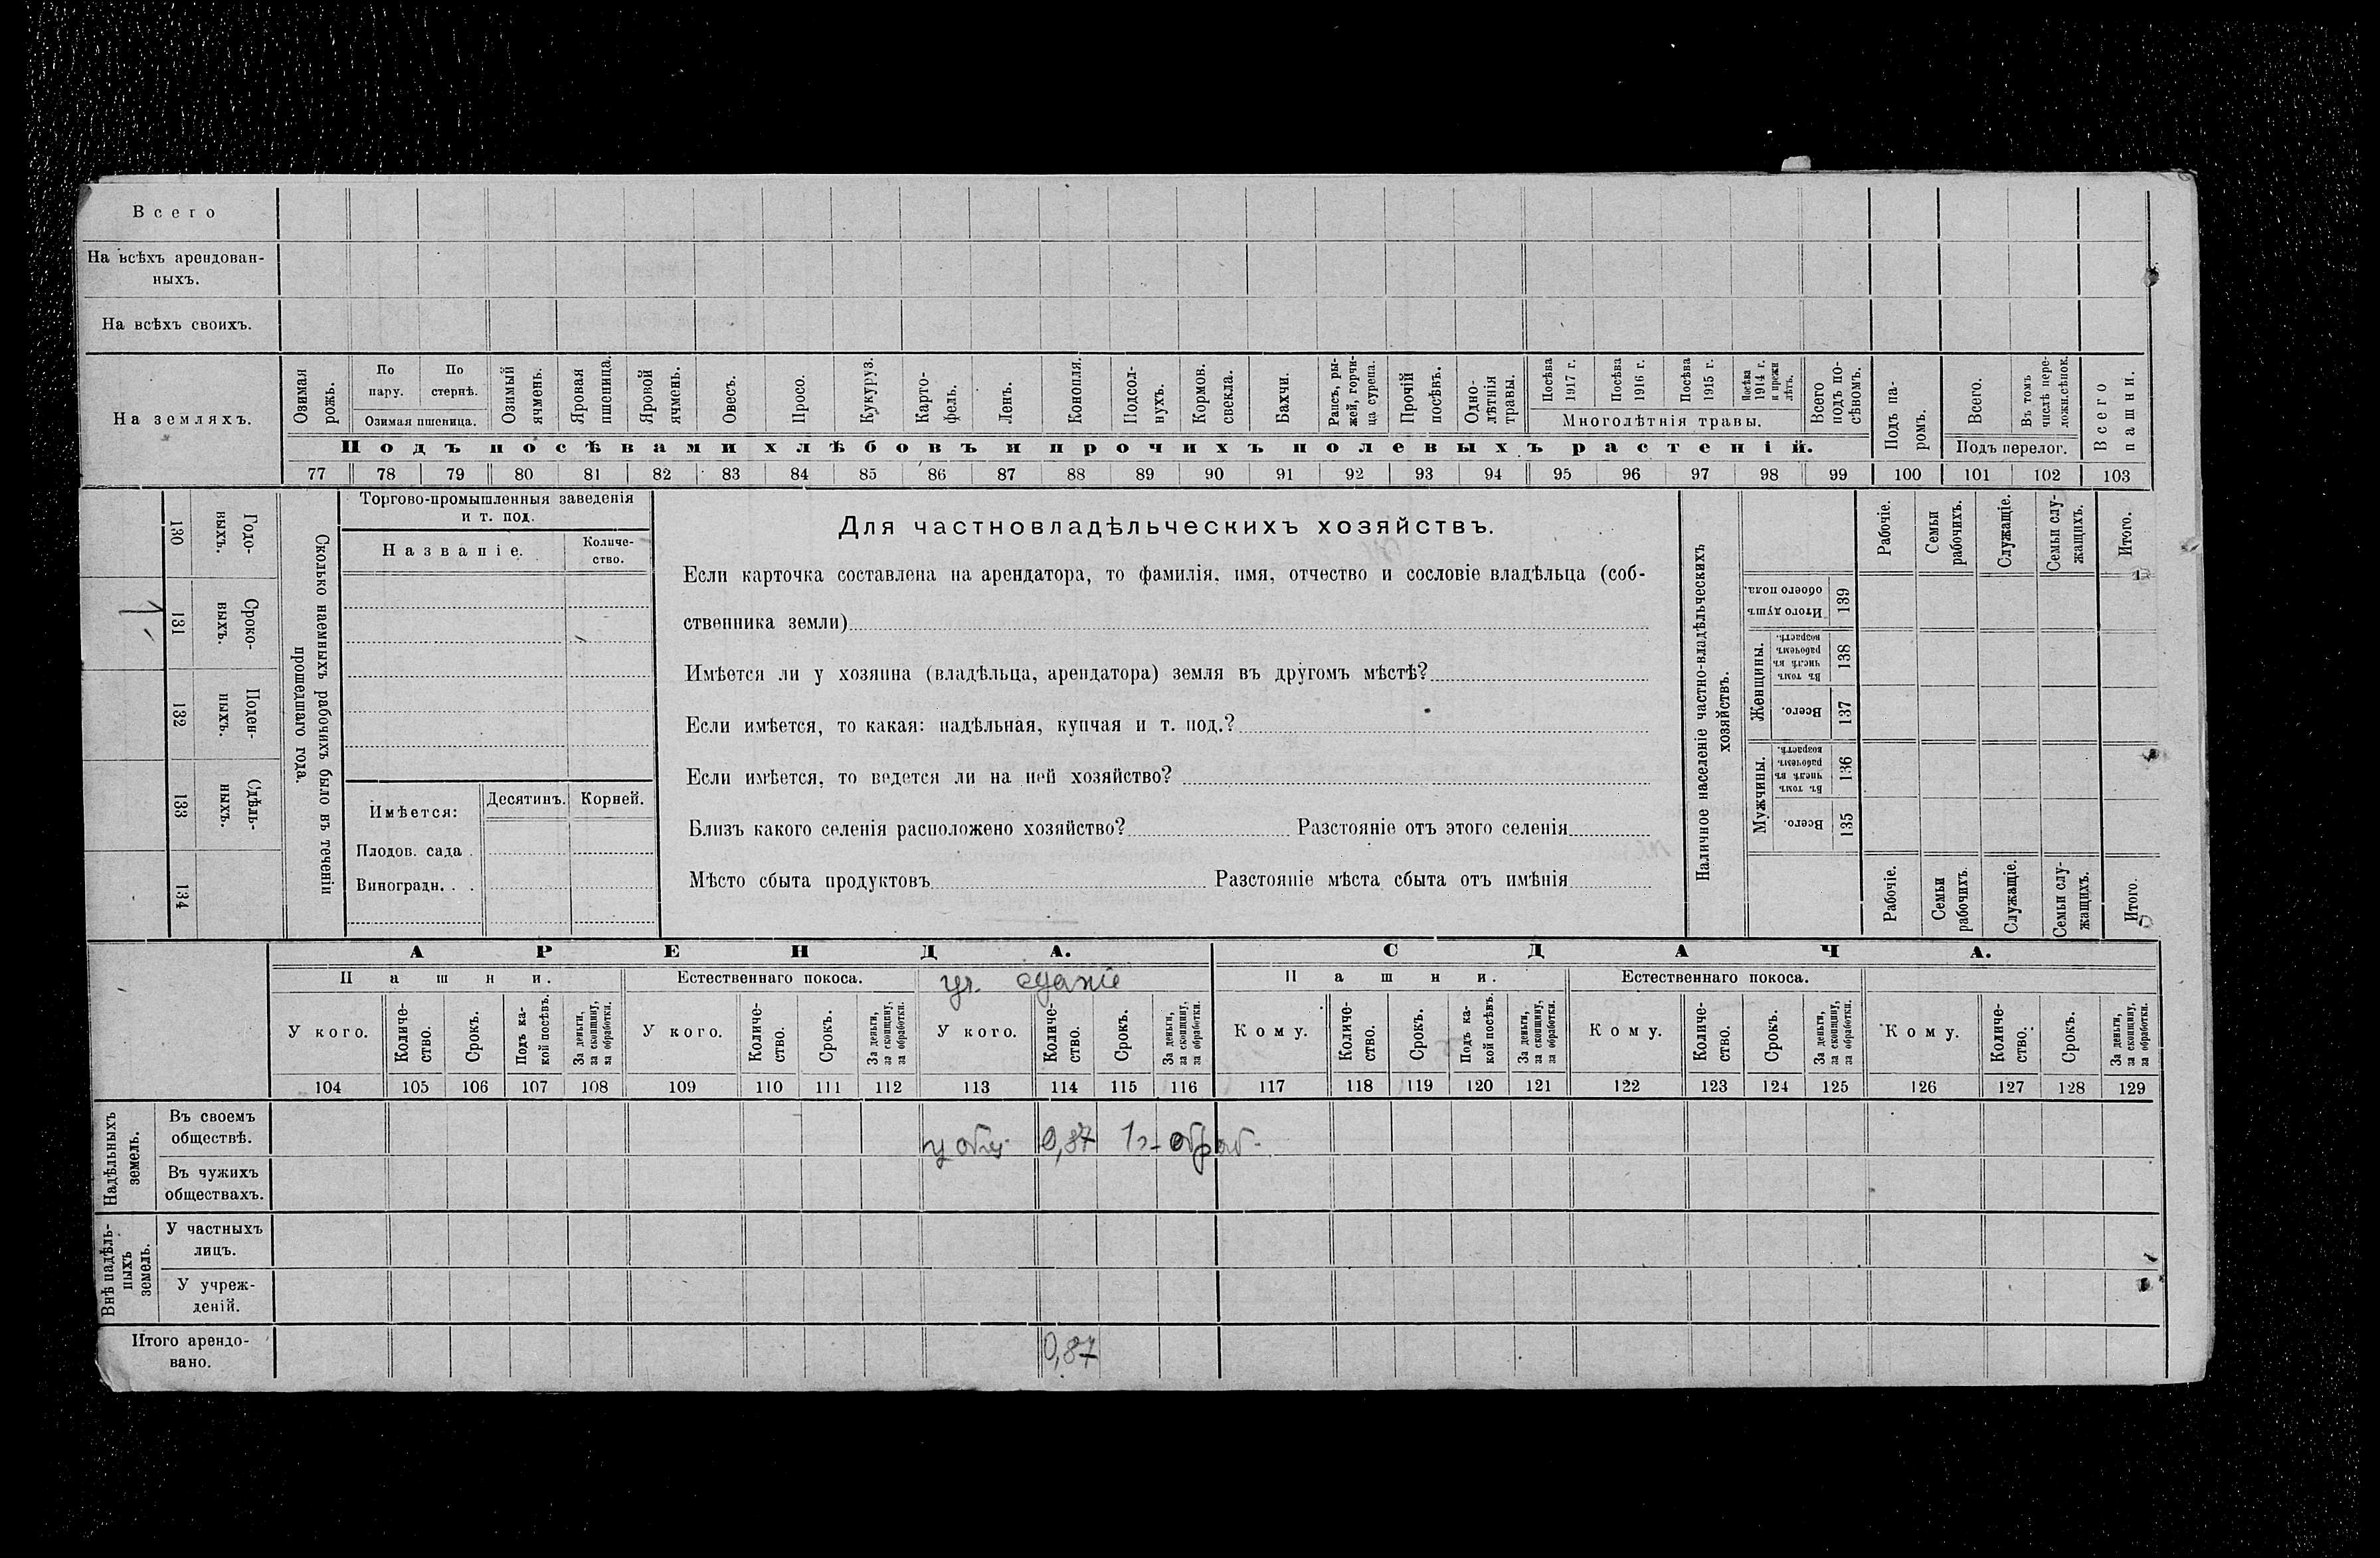 Всего
На всѣхъ арендован-
ныхъ.
На всѣхъ своихъ.
На земляхъ.
Озимая рожь.
По пару.
По стернѣ.
Озимая пшеница.
Озимый ячмень.
Яровая пшеница.
Яровой ячмень.
Овесъ.
Просо.
Кукуруз.
Карто-
фель.
Ленъ.
Конопля.
Подсол-
нухъ.
Кормов. свекла.
Бахчи.
Рапсъ, ры-
жей, горчи-
ца сурепа.
Прочій посѣвъ.
Одно-
лѣтнія травы.
Посѣва 1917 г.
Посѣва 1916 г.
Посѣва 1915 г.
Посѣва 1914 г. и прежн лѣтъ.
Многолѣтнія травы.
Всего подъ по-
сѣвомъ.
Подъ па-
ромъ.
Всего.
Въ томъ числѣ пере-
ложн.сѣнок.
Подъ перелог.
Всего пашни.
Подъ посѣвами хлѣбовъ и прочихъ полевыхъ растеній.
77 78 79 80 81 82 83 84 85 86 87 88 89 90 91 92 93 94 95 96 97 98 99 100 101 102 103
Сколько наемныхъ рабочихъ было въ теченіи
прошедшаго года.
Годо-
выхъ.
130
Сроко-
выхъ.
131
1
Поден-
ныхъ.
132
Сдѣль-
ныхъ.
133
134
Торгово-промышленныя заведенія
и т. под.
Названіе.
Количе-
ство.
Имѣется:
Десятинъ.
Корней.
Плодов. сада .
Виноградн. . .
Для частновладѣльческихъ хозяйствъ.
Если карточка составлена на арендатора, то фамилія, имя, отчество и сословіе владѣльца (соб-
ственника земли)
Имѣется ли у хозяина (владѣльца, арендатора) земля въ другомъ мѣстѣ?
Если имѣется, то какая: надѣльная, купчая и т. под.?
Если имѣется, то ведется ли на ней хозяйство?
Близъ какого селенія расположено хозяйство? Разстояніе отъ этого селенія
Мѣсто сбыта продуктовъ Разстояніе мѣста сбыта отъ имѣнія
Наличное населеніе частно-владѣльческихъ
хозяйствъ.
Рабочіе.
Семьи рабочихъ.
Служащіе.
Семьи слу-
жащихъ.
Итого.
Итого душъ обоего пола.
139
Женщины.
Въ томъ числѣ въ рабочемъ возрастѣ.
138
Всего.
137
Мужчины.
Въ томъ числѣ въ рабочемъ возрастѣ.
136
Всего.
135
Рабочіе.
Семьи рабочихъ.
Служащіе.
Семьи слу-
жащихъ.
Итого.
АРЕНДА.
СДАЧА.
Пашни.
Естественнаго покоса.
Пашни.
Естественнаго покоса.
У кого.
Количе-
ство.
Срокъ.
Подъ ка-
кой посѣвъ.
За деньги, за скопщину, за обработки.
У кого.
Количе-
ство.
Срокъ.
За деньги, за скопщину, за обработки.
У кого.
Количе-
ство.
Срокъ.
За деньги, за скопщину, за обработки.
Кому.
Количе-
ство.
Срокъ.
Подъ ка-
кой посѣвъ.
За деньги, за скопщину, за обработки.
Кому.
Количе-
ство.
Срокъ.
За деньги, за скопщину, за обработки.
Кому.
Количе-
ство.
Срокъ.
За деньги, за скопщину, за обработки.
104 105 106 107 108 109 110 111 112 113 114 115 116 117 118 119 120 121 122 123 124 125 126 127 128 129
Надѣльныхъ земель.
Въ своемъ
обществѣ.
у общ. 0,87 1г. обраб.
Въ чужихъ
обществахъ.
Внѣ надѣль-
ныхъ земель.
У частныхъ
лицъ.
У учреж-
деній.
Итого арендо-
вано.
0,87